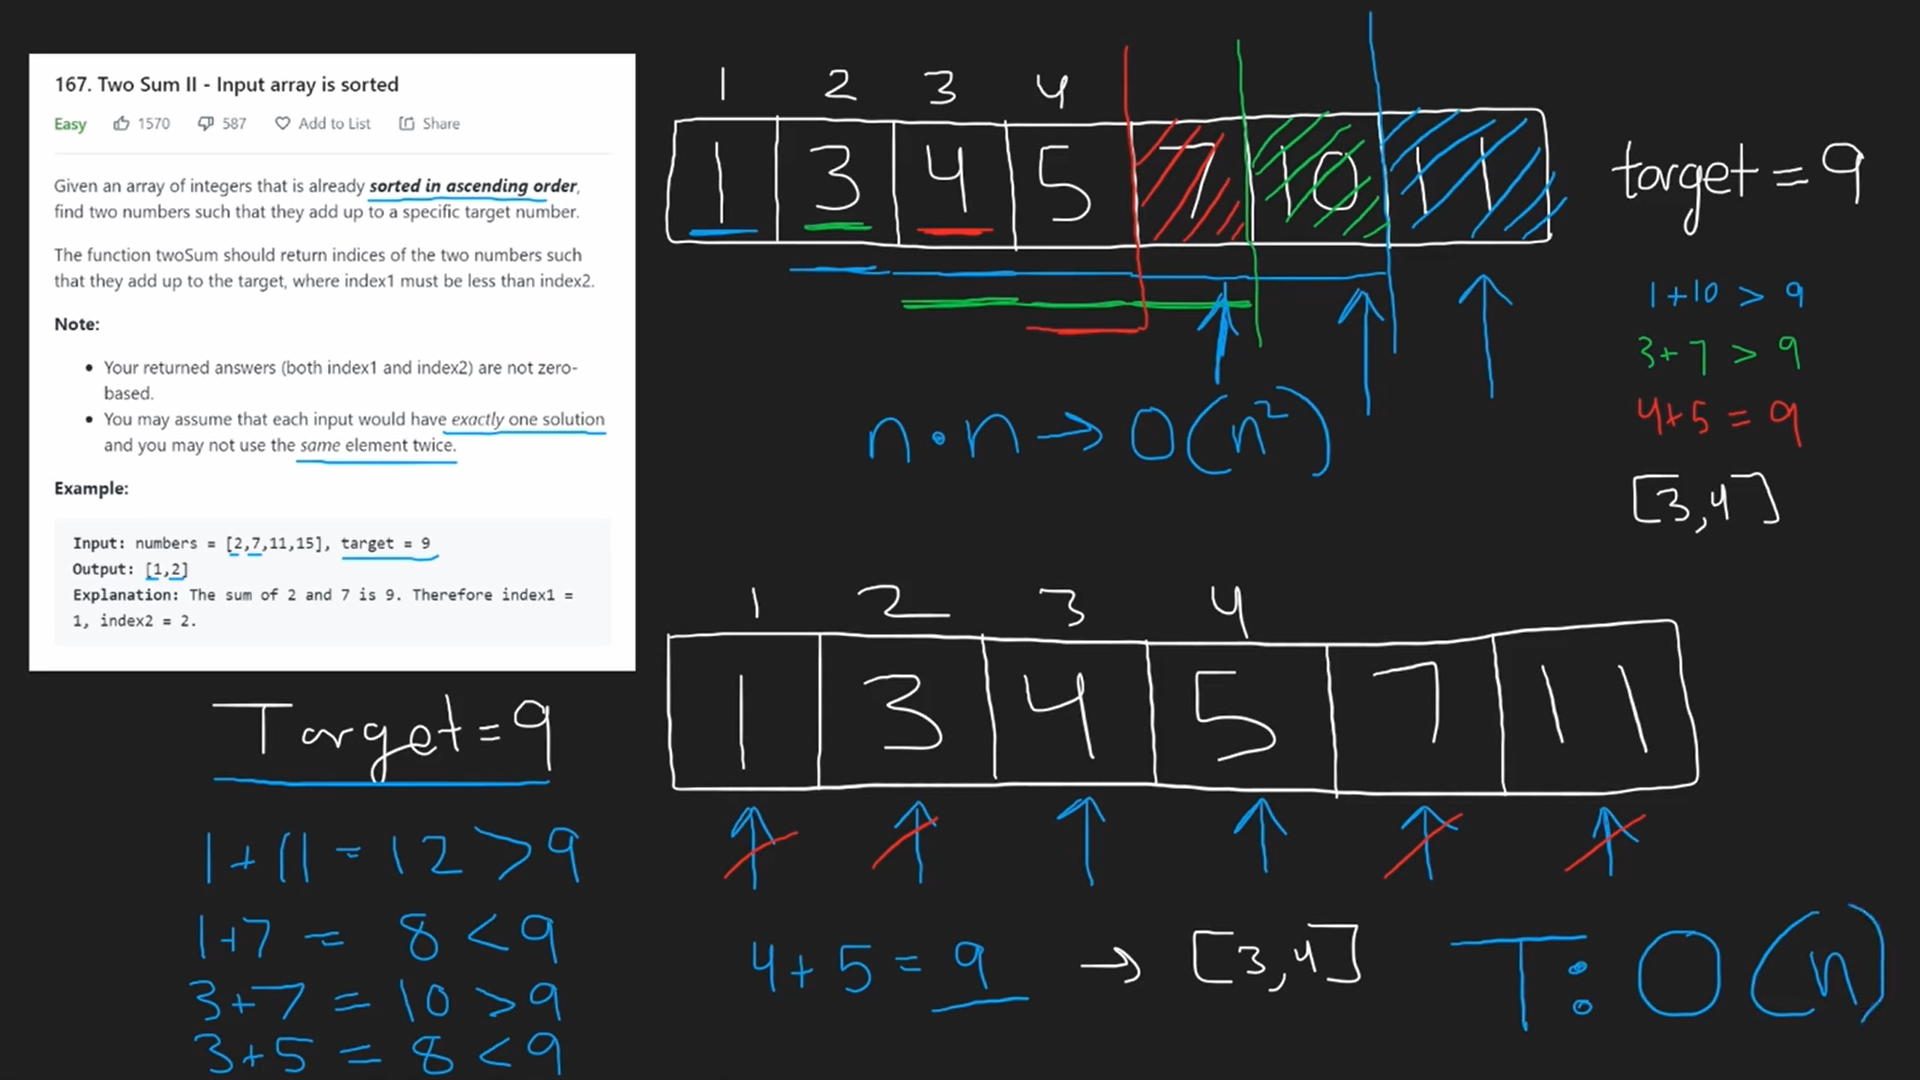 167. Two Sum II - Input array is sorted
Easy 1570 587 Add to List Share
Given an array of integers that is already sorted in ascending order,
find two numbers such that they add up to a specific target number.
The function twoSum should return indices of the two numbers such
that they add up to the target, where index1 must be less than index2.
Note:
Your returned answers (both index1 and index2) are not zero-
based.
You may assume that each input would have exactly one solution
and you may not use the same element twice.
Example:
Input: numbers = [2,7,11,15], target = 9
Output: [1,2]
Explanation: The sum of 2 and 7 is 9. Therefore index1 =
1, index2 = 2.
1 2 3 4
1 3 4 5 7 10 11
target = 9
1+10 > 9
3+7 > 9
4+5 = 9
[3,4]
n·n → O(n²)
1 2 3 4
1 3 4 5 7 11
Target=9
1+11 = 12 >9
1+7 = 8 <9
3+7 = 10 >9
3+5 = 8 <9
4+5 = 9 → [3,4]
T: O(n)